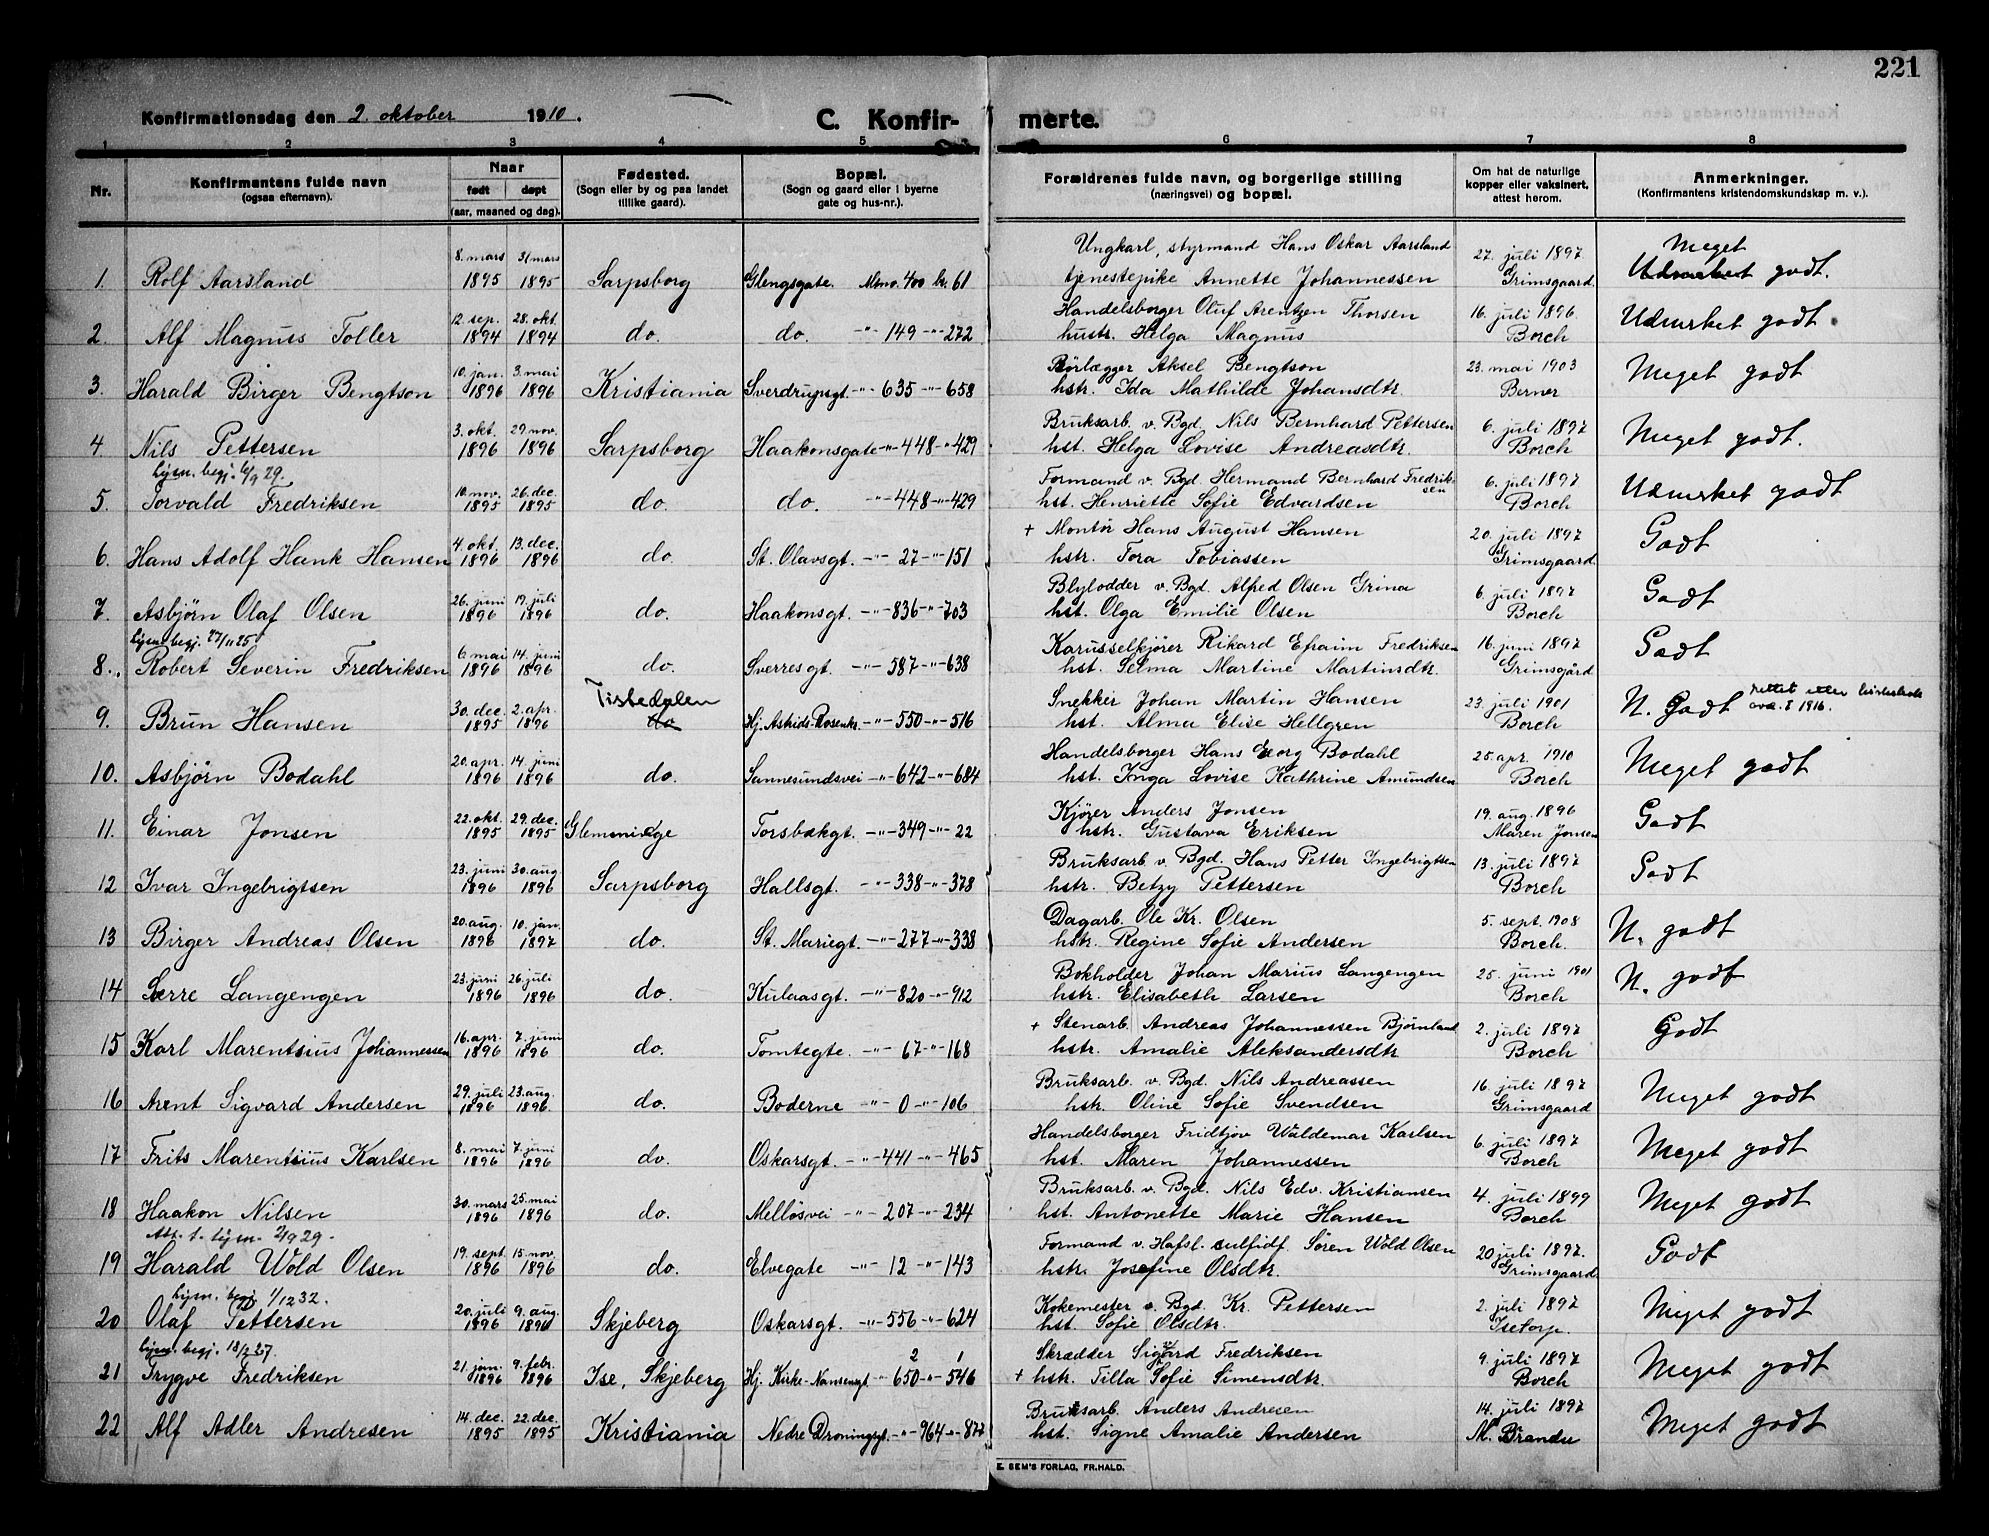 221
Konfirmationsdag den 2. oktober 1910.
C. Konfirmerte.
1 2 3 4 5 6 7 8
Nr.
Konfirmantens fulde navn
(ogsaa efternavn).
Naar
født døpt
(aar, maaned og dag).
Fødested.
(Sogn eller by og paa landet
tillike gaard).
Bopæl.
(Sogn og gaard eller i byerne
gate og hus-nr.).
Forældrenes fulde navn, og borgerlige stilling
(næringsvei) og bopæl.
Om hat de naturlige
kopper eller vaksinert,
attest herom.
Anmerkninger.
(Konfirmantens kristendomskundskap m. v.).
8. mars 31 mars Ungkarl, styrmand Hans Oskar Aarsland 27. juli 1897 Meget
1. Rolf Aarsland 1895 1895 Sarpsborg Glengsgate. Mtno. 400 br. 61 tjenestepike Annette Johannessen Grimsgaard Udmerket godt.
12. sep. 28. okt. Handelsborger Oluf Arentzen Thorsen 16. juli 1896
2. Alf Magnus Toller 1894 1894 do. do. -"- 149 -"- 272 hustr. Helga Magnus Borch Udmerket godt.
10. jan. 3. mai Rörlægger Aksel Bengtson 23. mai 1903
3. Harald Birger Bengtson 1896 1896 Kristiania Sverdrupsgt. -"- 635 -"- 658 hstr. Ida Mathilde Johansdtr. Berner Meget godt
3. okt. 29. nov. Bruksarb. v. Bgd. Nils Bernhard Pettersen 6. juli 1897
4 Nils Pettersen 1896 1896 Sarpsborg Haakonsgate -"- 448 -"- 429 hst. Helga Lovise Andreasdtr. Borch Meget godt.
Lysn. begj. 6/9 29.
10. nov. 26. dec. Formand v. Bgd. Hermand Bernhard Fredriksen 6. juli 1897
5. Torvald Fredriksen 1895 1895 do. do. -"- 448 -"- 429 hst. Henriette Sofie Edvardsen Borch Udmerket godt
4. okt. 13. dec. + Montör Hans August Hansen 20. juli 1897
6. Hans Adolf Hank Hansen 1896 1896 do St. Olavsgt. -"- 27 -"- 151 hstr. Tora Tobiassen Grimsgaard Godt
26. juni 19. juli Blylodder v. Bgd. Alfred Olsen Grina 6. juli 1897
7. Asbjörn Olaf Olsen 1896 1896 do. Haakonsgt. -"- 836 -"- 703 hst. Olga Emilie Olsen Borch Godt
Lysn. begj. 27/11 25
6 mai 14. juni Karusselkjörer Rikard Efraim Fredriksen 16. juni 1897
8. Robert Severin Fredriksen 1896 1896 do. Sverresgt. -"- 587 -"- 638 hst. Selma Martine Martinsdtr. Grimsgård Godt
30. dec. 2. apr. Tistedalen Snekker Johan Martin Hansen 23. juli 1901
9. Brun Hansen 1895 1896 do Hj. Astrids-Rosenkr. -"- 550 -"- 516 hst. Alma Elise Hellgren Borch N. Godt rettet etter
20. apr. 14 juni Handelsborger Hans Georg Bodahl 25. apr. 1910
10. Asbjörn Bodahl 1896 1896 do. Sannesundsvei -"- 642 -"- 684 hst. Inga Lovise Kathrine Amundsen Borch Meget godt
22. okt. 29. dec. Kjörer Anders Jonsen 19. aug. 1896
11. Einar Jonsen 1895 1895 Glemminge Torsbækgt. -"- 349 -"- 22 hstr. Gustava Eriksen Maren Jonsen Godt
23. juni 30. aug. Bruksarb v. Bgd. Hans Petter Ingebrigtsen 13. juli 1897
12 Ivar Ingebrigtsen 1896 1896 Sarpsborg Hallsgt. -"- 338 -"- 378 hstr. Betzy Pettersen Borch Godt
20. aug. 10. jan. Dagarb. Ole Kr. Olsen 5. sept. 1908
13 Birger Andreas Olsen 1896 1897 do. St. Mariegt. -"- 277 -"- 338 hstr. Regine Sofie Andersen Borch. N. godt
23. juni 26. juli Bokholder Johan Marius Langengen 25. juni 1901
14 Sverre Langengen 1896 1896 do. Kulaasgt. -"- 820 -"- 912 hstr. Elisabeth Larsen Borch N. godt
16. apr. 7. juni + Stenarb. Andreas Johannessen Bjørnland 2. juli 1897
15 Karl Marentsius Johannessen 1896 1896 do. Tomtegte. -"- 67 -"- 168 hstr. Amalie Aleksandersdtr Borch Godt
29. juli 23. aug. Bruksarb. v. Bgd. Nils Andreassen 16. juli 1897
16 Arent Sigvard Andersen 1896 1896. do. Boderne -"- 0 -"- 106 hstr. Oline Sofie Svendsen Grimsgaard Meget godt
8. mai 7. juni Handelsborger Fridtjov Waldemar Karlsen 6. juli 1897
17 Frits Marentsius Karlsen 1896 1896 do. Oskarsgt. -"- 441 -"- 465 hst. Maren Johannessen Borch Meget godt
30. mars 25. mai Bruksarb. v. Bgd. Nils Edv. Kristiansen 4. juli 1899
18 Haakon Nilsen 1896 1896 do. Mellösvei -"- 207 -"- 234 hst. Antonette Marie Hansen Borch Meget godt
Att. t. lysn. 2/9 29.
19. sept. 15. nov. Formand v. Hafsl. sulfidf. Sören Wold Olsen 20 juli 1897.
19 Harald Wold Olsen 1896 1896 do. Elvegate -"- 12 -"- 143 hstr. Josefine Olsdtr. Grimsgaard Godt
Lysn. begj. 1/12 32.
20. juli 9. aug. Kokemester v. Bgd. Kr. Pettersen 2. juli 1897
20 Olaf Pettersen 1896 1896 Skjeberg Oskarsgt. -"- 556 -"- 624 hst. Sofie Olsdtr. Isetorp. Meget godt
Lysn. begj. 18/2 27.
21. jan. 9. febr. 2 1 Skrædder Sigvard Fredriksen 9. juli 1897
21 Trygve Fredriksen 1896 1896 Ise, Skjeberg Hj. Kirke-Nansensgt. -"- 650 -"- 546 + hstr. Tilla Sofie Simensdtr. Borch Meget godt
14. dec. 22. dec. Bruksarb. Anders Andresen 14. juli 1897
22 Alf Adler Andresen 1895 1895 Kristiania Nedre Droningsgt. -"- 964 -"- 877 hst. Signe Amalie Andersen M. Brandu Meget godt
E. SEM'S FORLAG, FR.HALD.